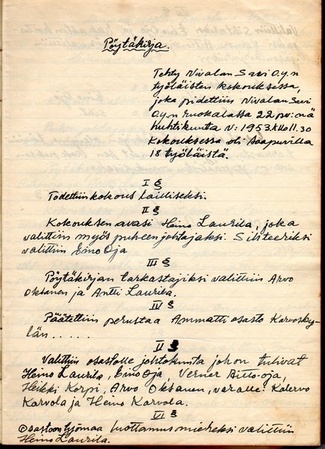 Pöytäkirja.
Tehty Nivalan Savi O.y.n
työläisten kokouksessa,
joka pidettiin Nivalan Savi
O.y.n ruokalassa 22 pv:nä
huhtikuuta V: 1953 klo 11.30
Kokouksessa oli saapuvilla
18 työläistä.
I §
Todettiin kokous lailliseksi.
II §
Kokouksen avasi Heino Laurila, joka
valittiin myös puheenjohtajaksi. Sihteeriksi
valittiin Eino Oja
III §
Pöytäkirjan tarkastajiksi valittiin Arvo
Oksanen ja Antti Laurila.
IV §
Päätettiin perustaa Ammatti osasto Karvosky-
län.....
V §
Valittiin osastolle johtokunta johon tulivat
Heino Laurila, Eino Oja, Verner
Heikki Korpi, Arvo Oksanen, varalle: Kalervo
Karvola ja Heino Karvola.
VI §
Osaston työmaa luottamusmieheksi valittiin
Heino Laurila.